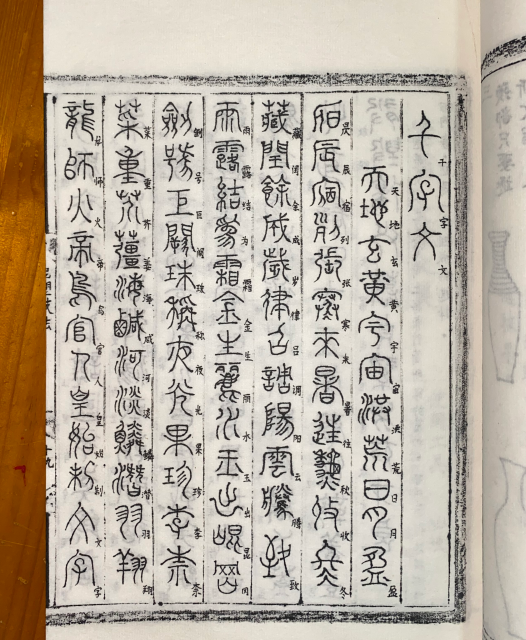 千字文
天地玄黃宇宙洪荒日月盈
昃辰宿列張寒來暑往秋收冬
藏閏餘成歲律呂調陽雲騰致
雨露結為霜金生麗水玉出崐岡
劍號巨闕珠稱夜光果珍李柰
菜重芥薑海鹹河淡鱗潛羽翔
龍師火帝鳥官人皇始制文字